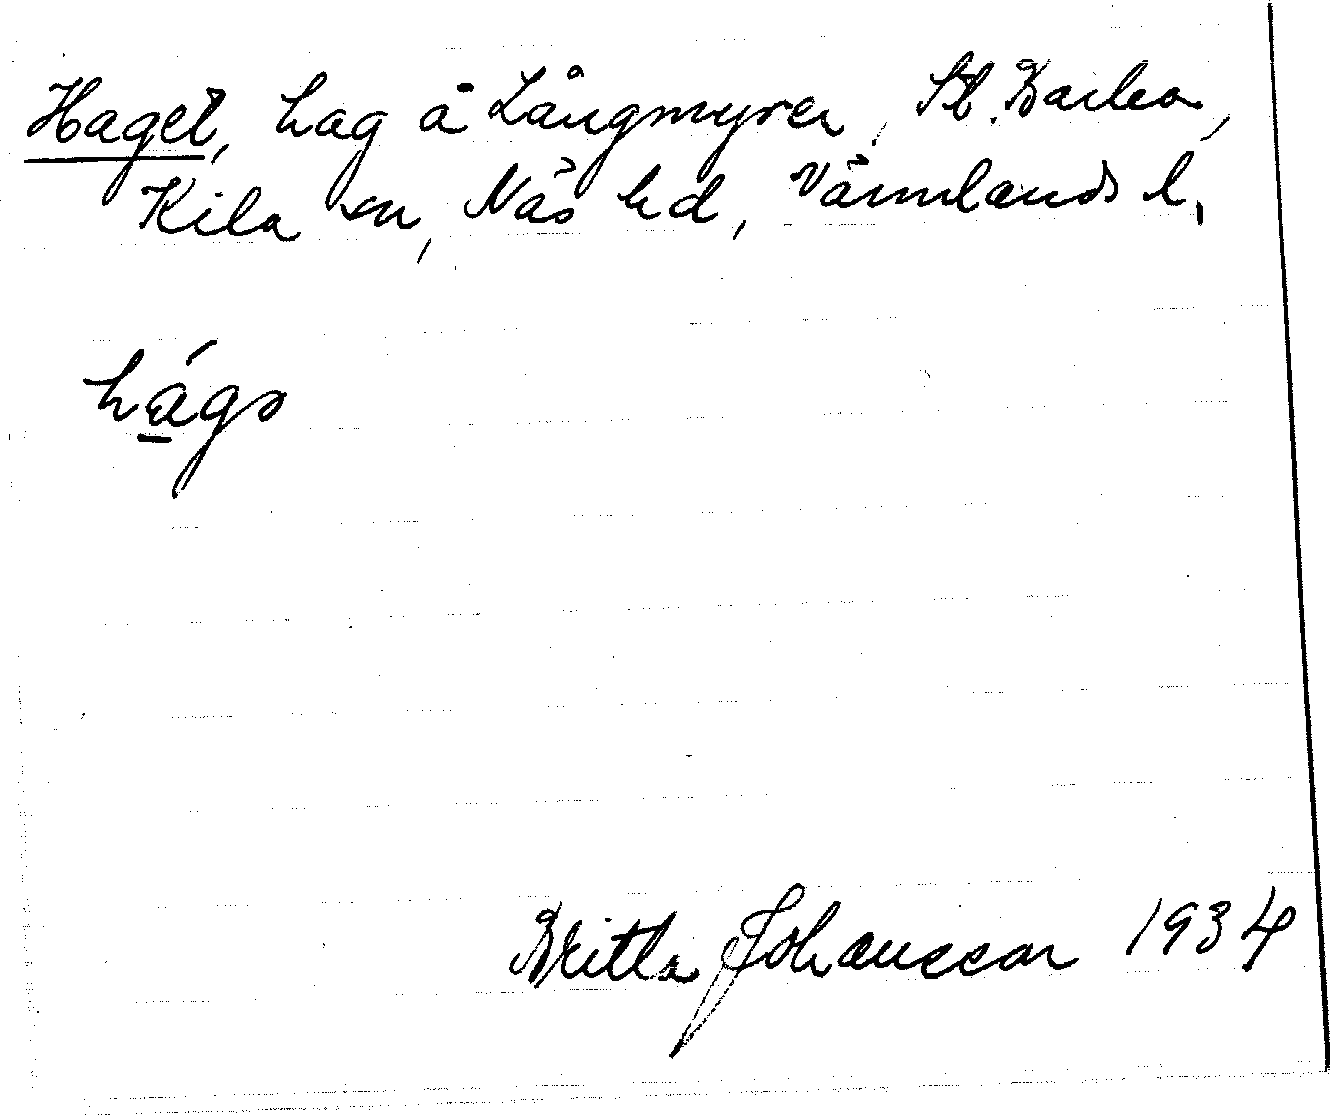 Haget, hag å Långmyren, St. Barlea,
Kila sn, Näs hd, Värmlands l.
hágs
Britta Johansson 1934